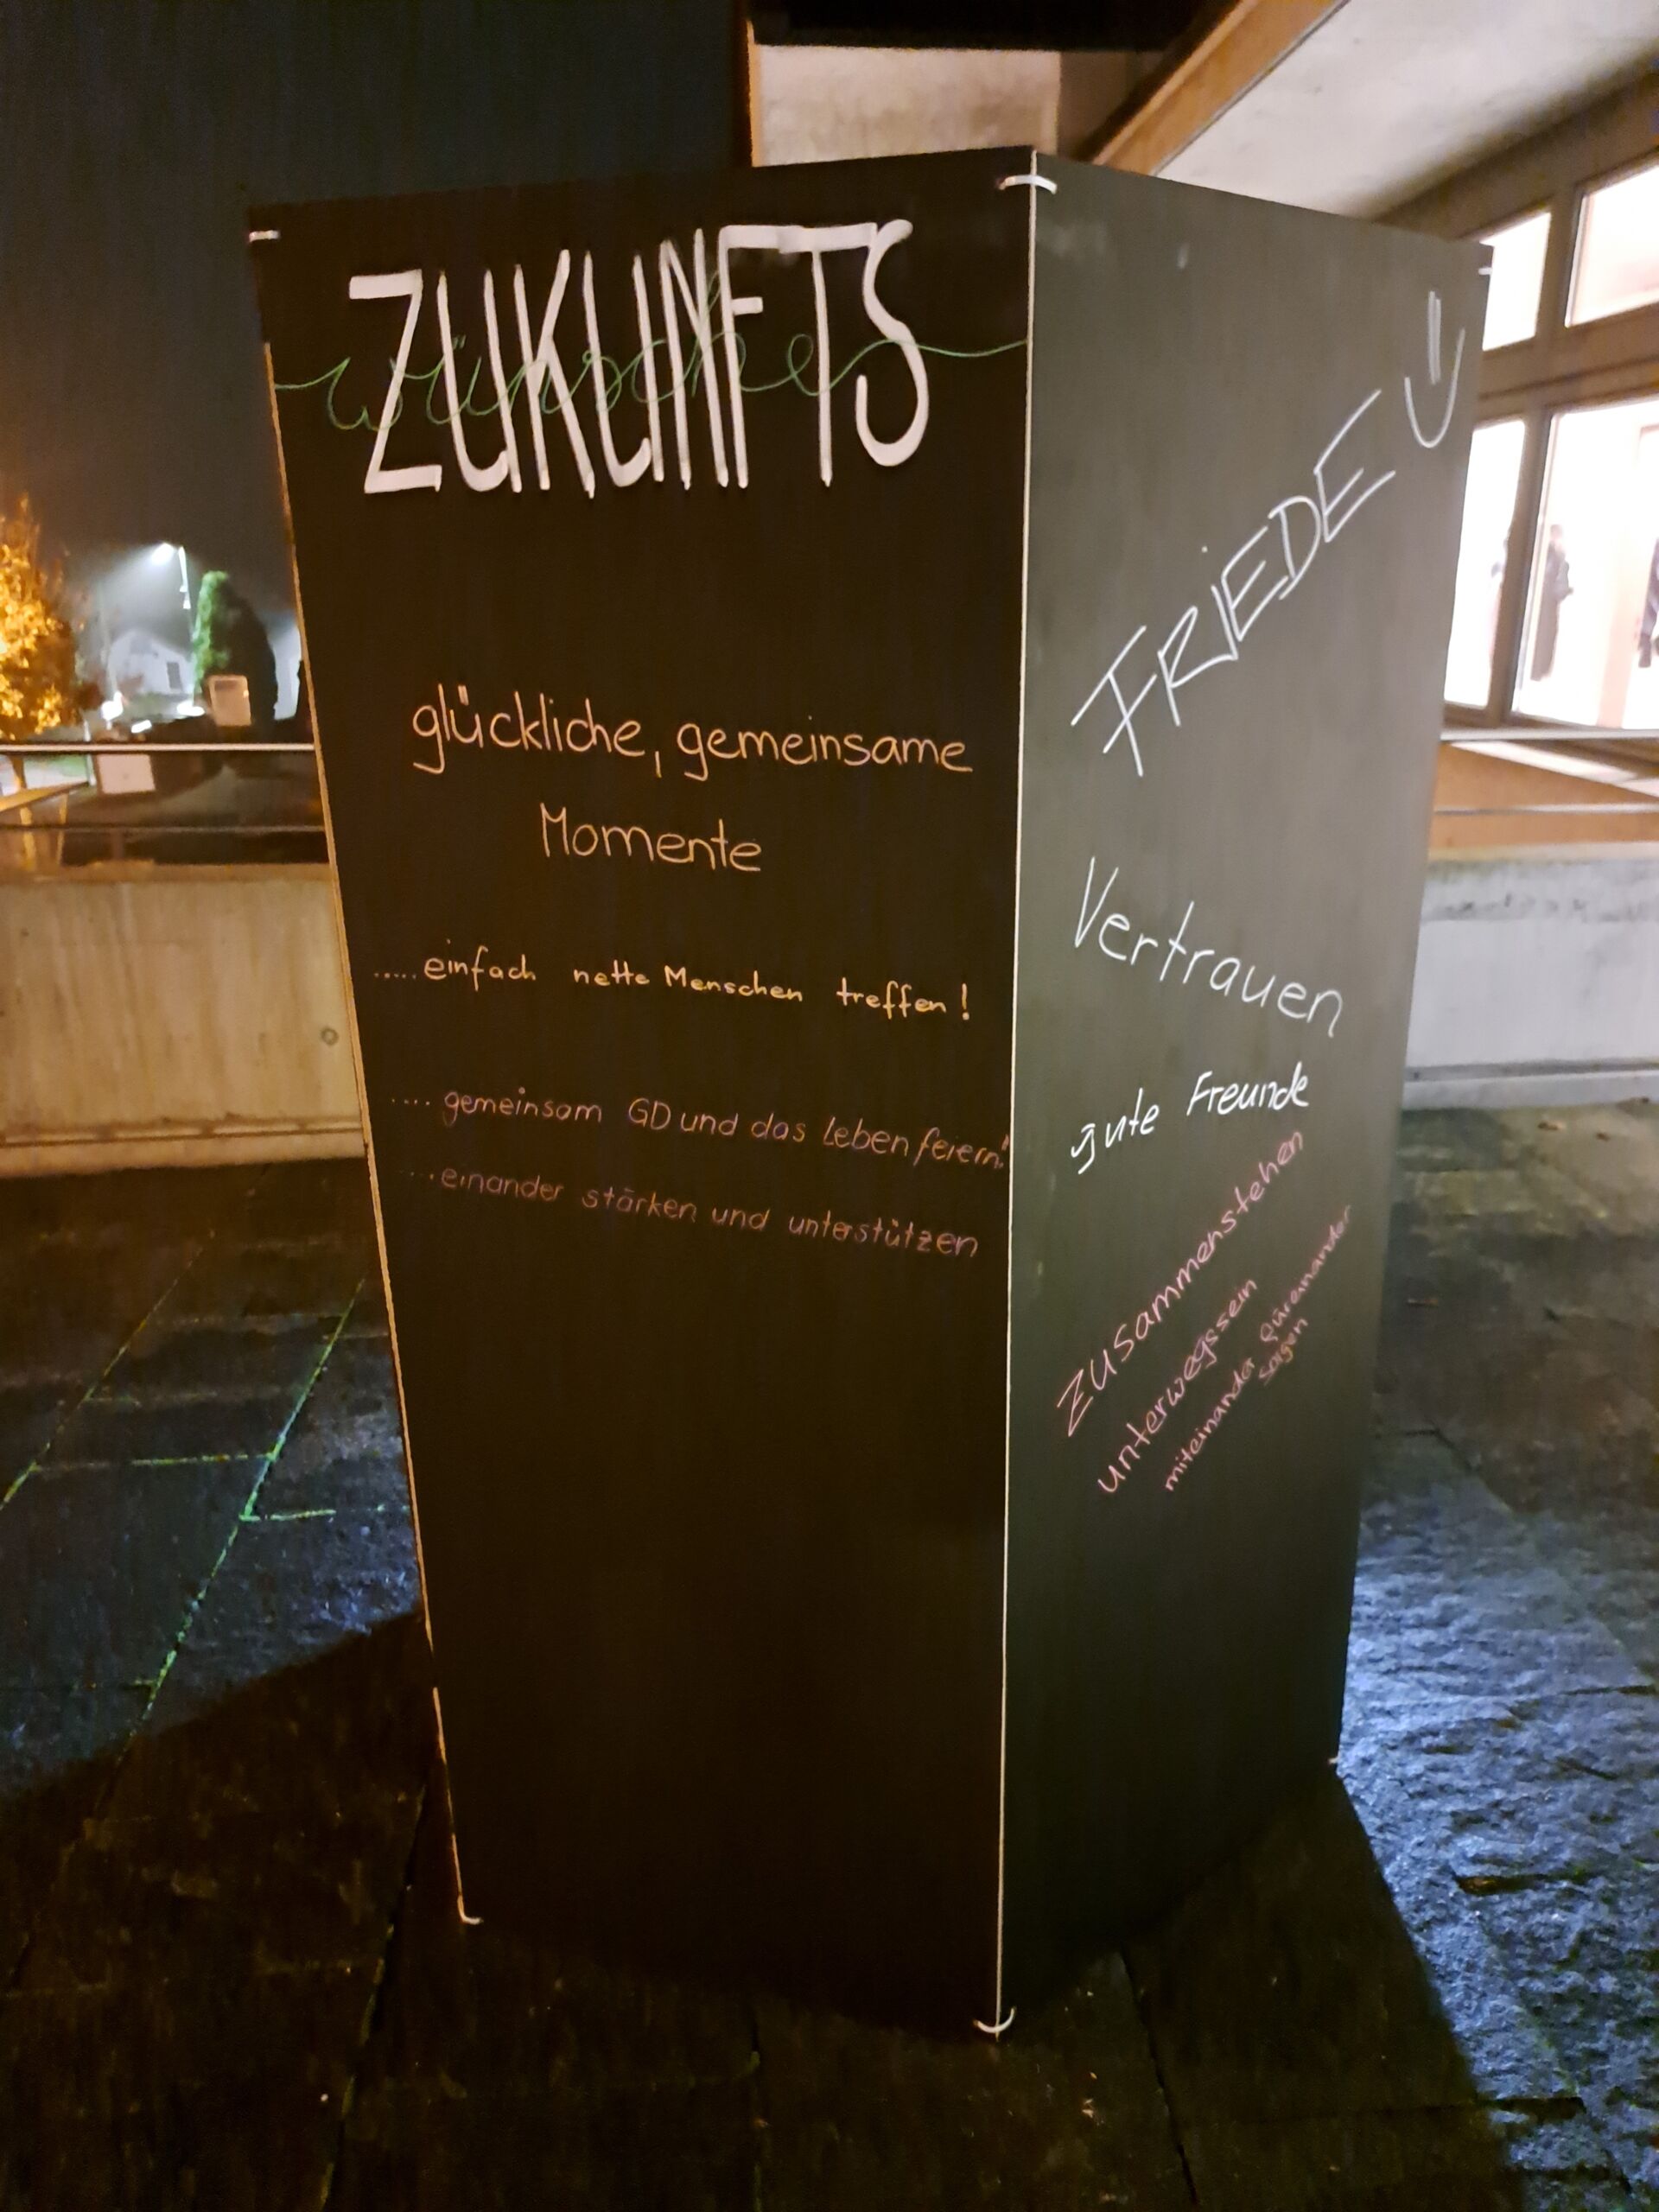 ZUKUNFTS
wünsche
glückliche, gemeinsame
Momente
..... einfach nette Menschen treffen!
.... gemeinsam GD und das Leben feiern!
.... einander stärken und unterstützen
FRIEDE
Vertrauen
gute Freunde
Zusammenstehen
unterwegssein
miteinander füreinander
sorgen